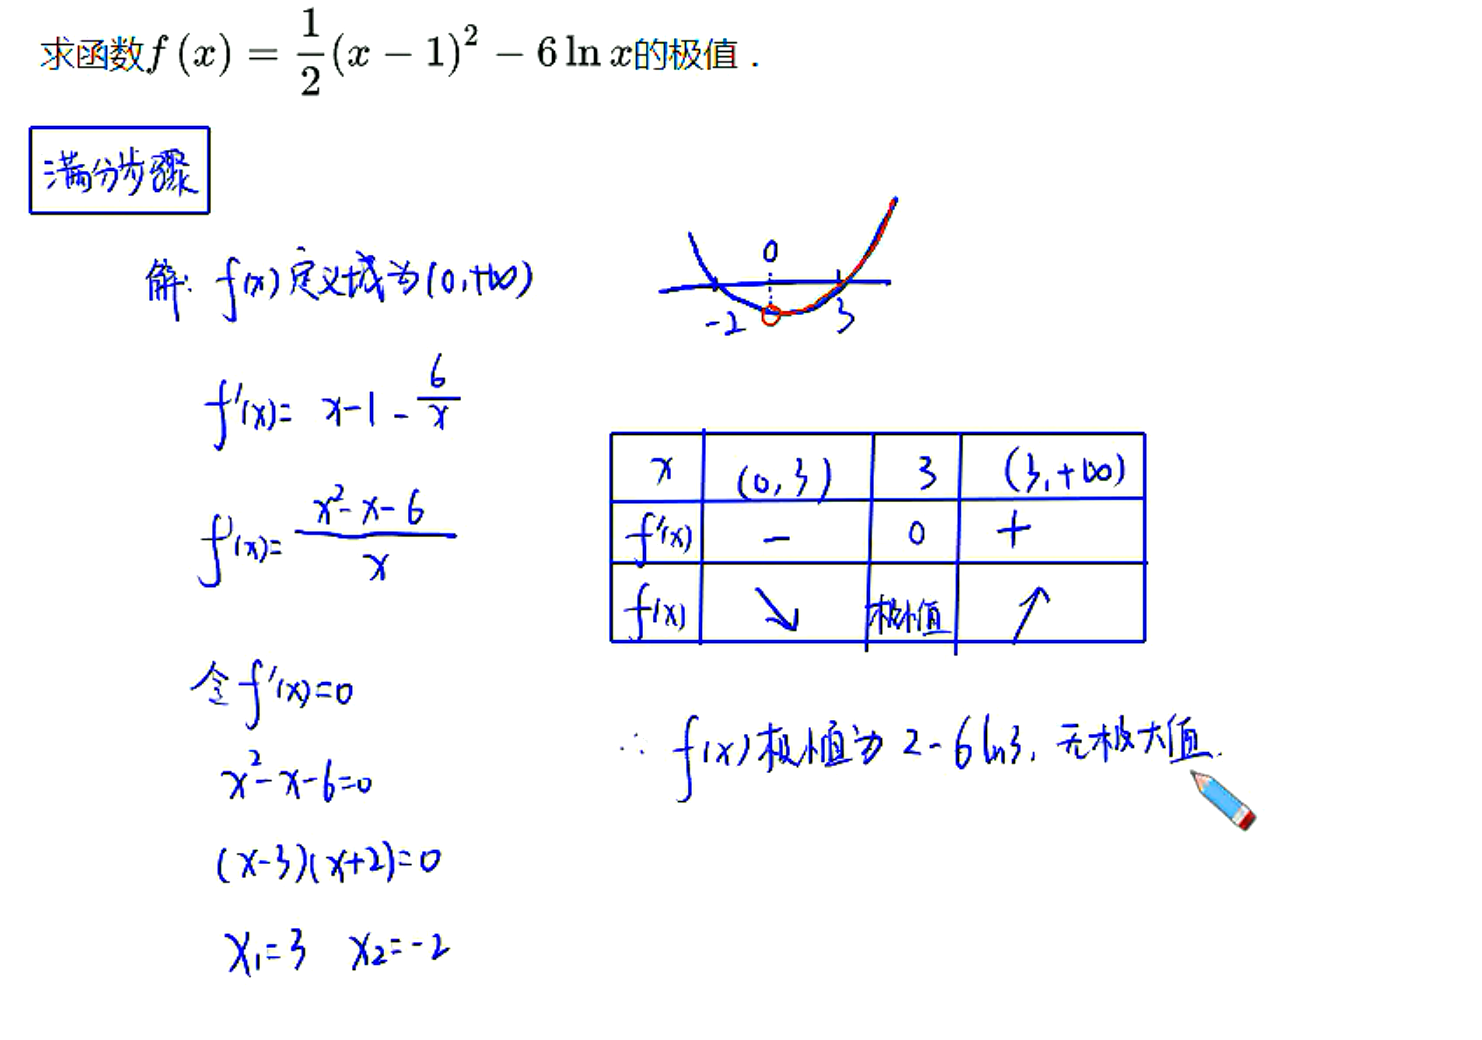 求函数f(x) = \frac{1}{2}(x − 1)² − 6 ln x的极值．
满分步骤
解: f(x)定义域为(0,+∞)
f'(x)= x-1-\frac{6}{x}
f'(x)=\frac{x²-x-6}{x}
令f'(x)=0
x²-x-6=0
(x-3)(x+2)=0
x₁=3 x₂=-2
0
-2 3
x (0,3) 3 (3,+∞)
f'(x) - 0 +
f(x) ↘ 极小值 ↗
∴ f(x)极小值为 2-6ln3, 无极大值.